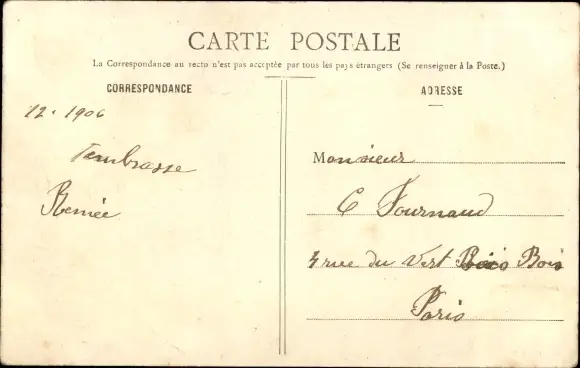 CARTE POSTALE
La Correspondance au recto n'est pas acceptée par tous les pays étrangers (Se renseigner à la Poste.)
CORRESPONDANCE
12. 1906
T'embrasse
Renée
ADRESSE
Monsieur
C Fournaud
4 rue du Vert Bois Bois
Paris